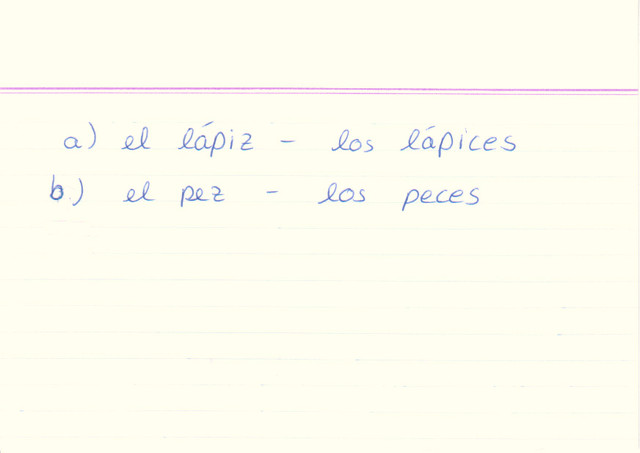 a) el lápiz - los lápices
b) el pez - los peces